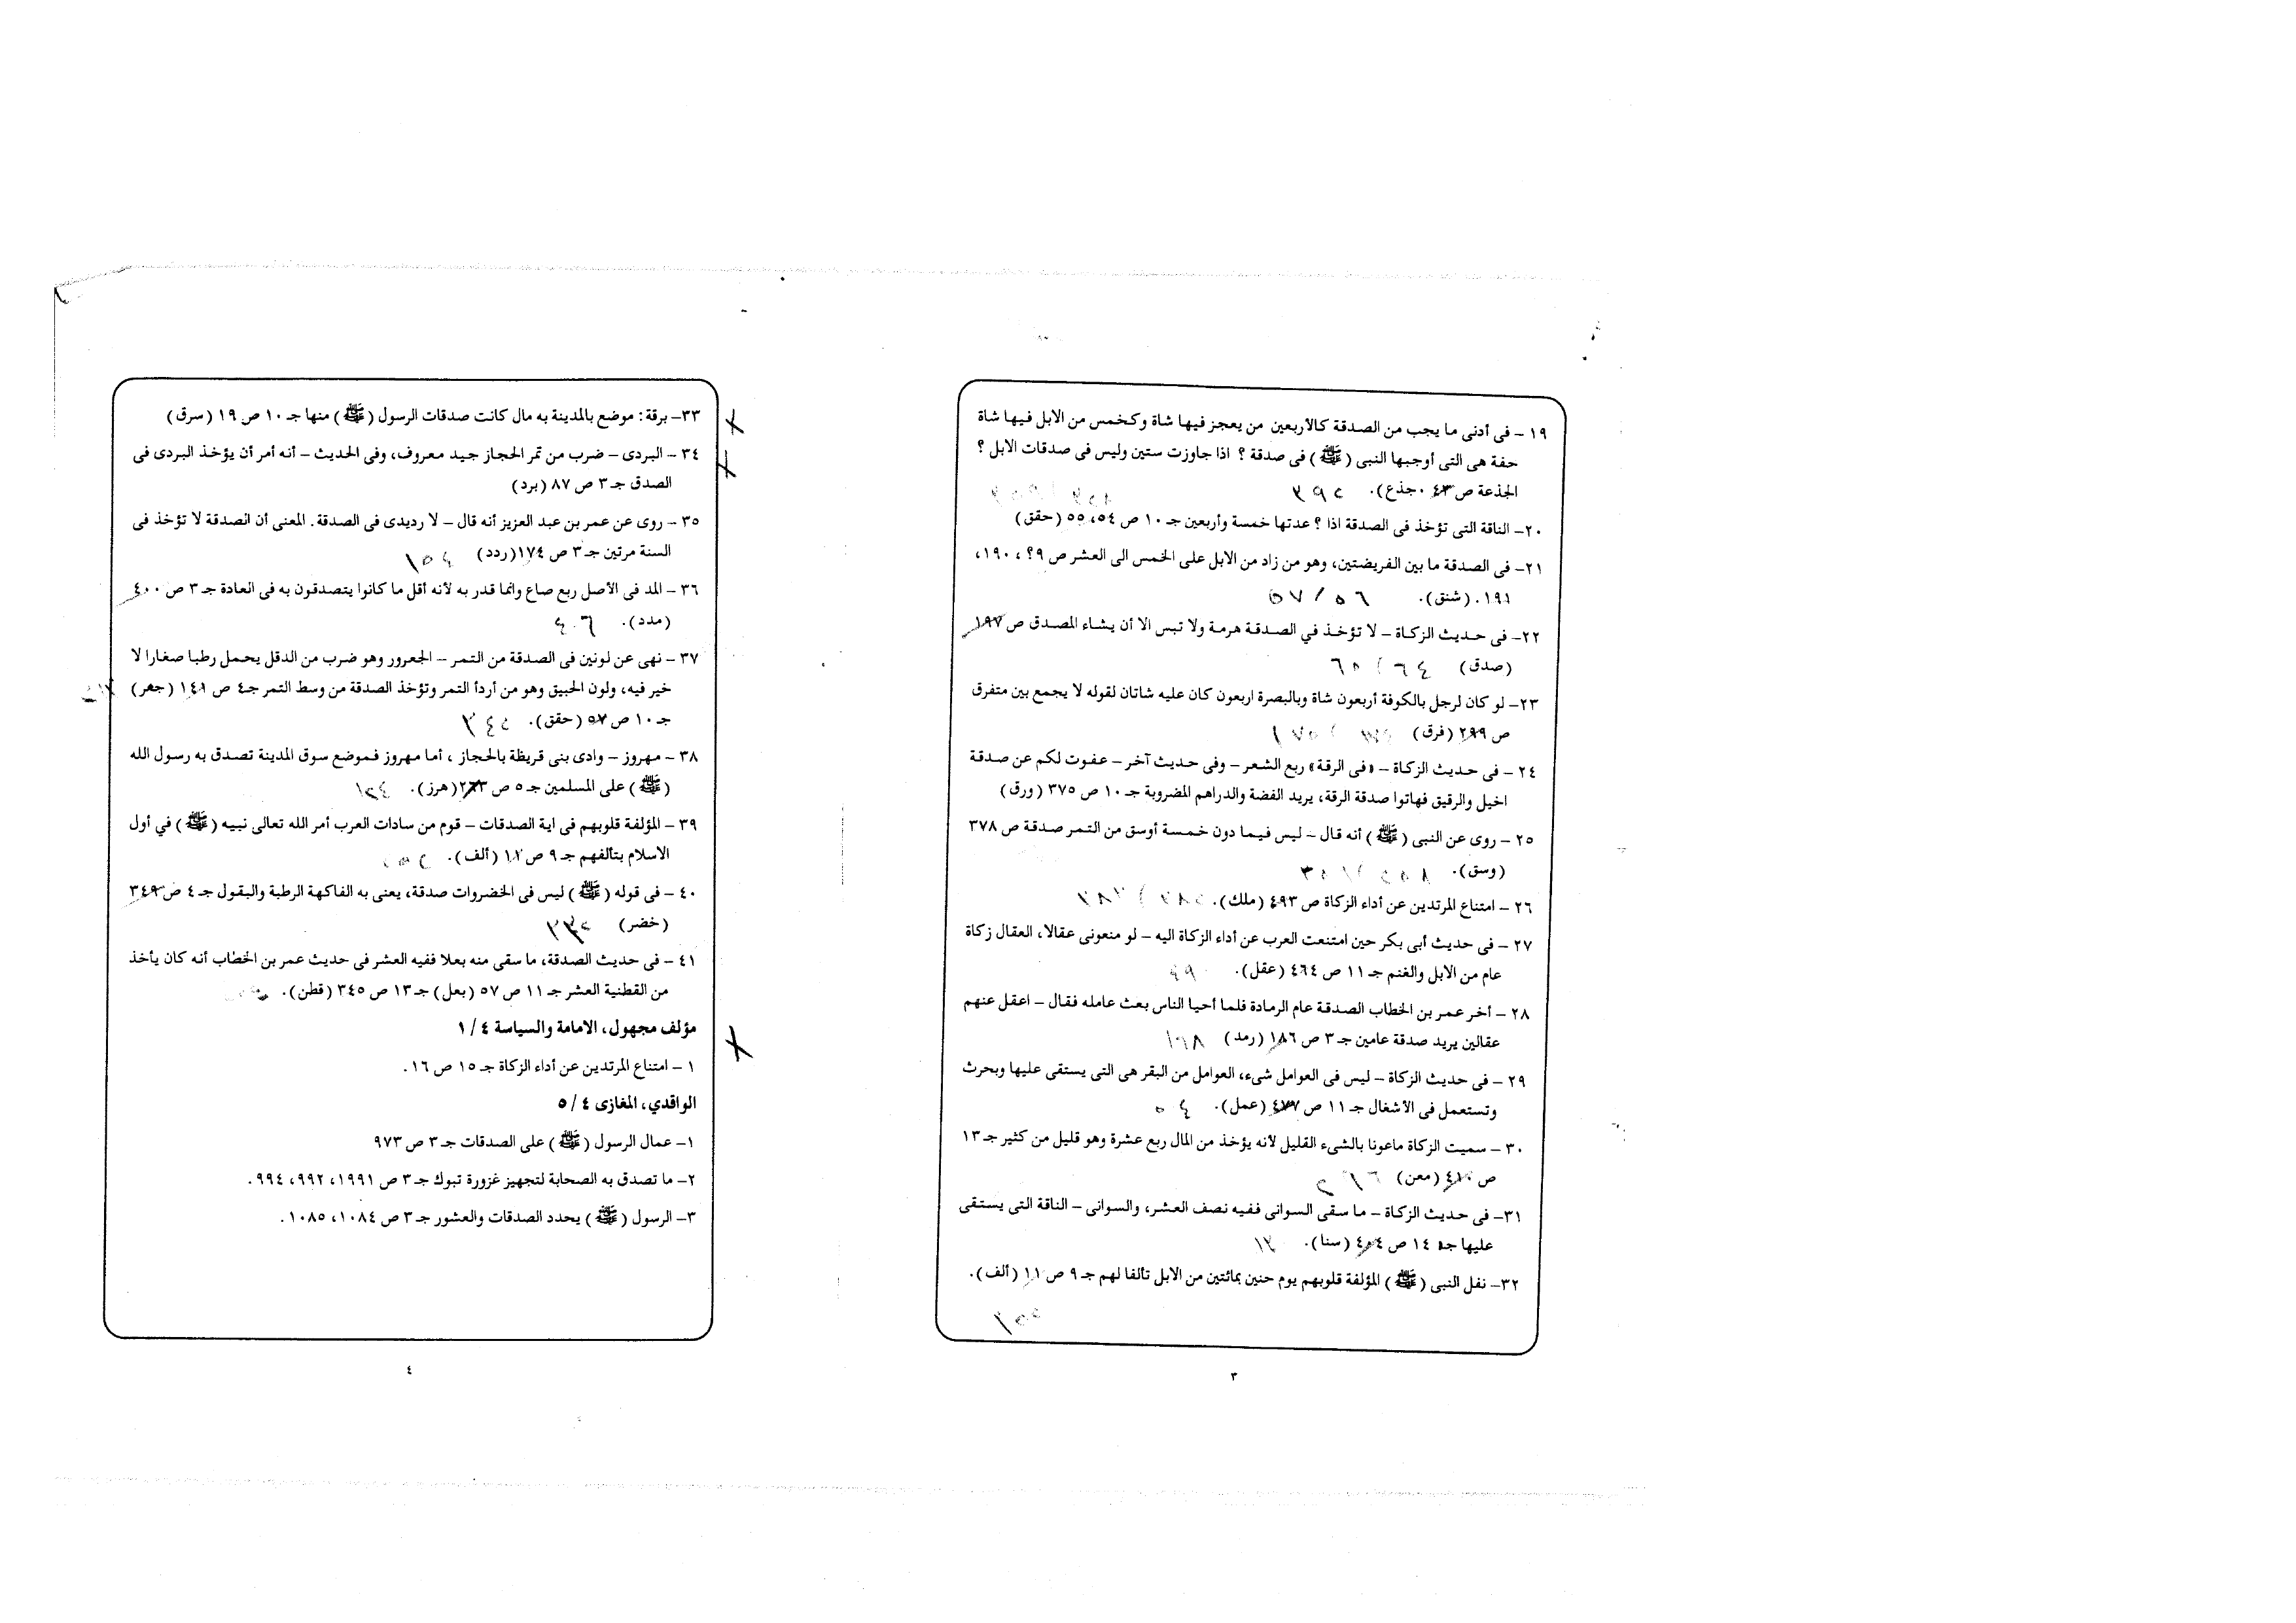 ١٩ – فى أدنى ما يجب من الصدقة كالأربعين من يعجز فيها شاة وكخمس من الابل فيها شاة
حفة هى التى أوجبها النبى (ﷺ) فى صدقة ؟ اذا جاوزت ستين وليس فى صدقات الابل ؟
الجذعة ص ٤٣ .جذع). ٣٩٢
٢٠– الناقة التى تؤخذ فى الصدقة اذا ؟ عدتها خمسة وأربعين جـ ١٠ ص ٥٤، ٥٥ (حقق)
٢١– فى الصدقة ما بين الفريضتين، وهو من زاد من الابل على الخمس الى العشر ص ٩؟ ، ١٩٠،
١٩١. (شنق). ٥٦ / ٥٧
٢٢– فى حديث الزكاة – لا تؤخذ في الصدقة هرمة ولا تيس الا أن يشاء المصدق ص ١٩٧
(صدق) ٦٤ ) ٦٥
٢٣– لو كان لرجل بالكوفة أربعون شاة وبالبصرة اربعون كان عليه شاتان لقوله لا يجمع بين متفرق
ص ٢٩٩ (فرق)
٢٤ – فى حديث الزكاة – «فى الرقة» ربع الشعر – وفى حديث آخر – عفوت لكم عن صدقة
اخيل والرقيق فهاتوا صدقة الرقة، يريد الفضة والدراهم المضروبة جـ ١٠ ص ٣٧٥ (ورق)
٢٥ – روى عن النبى (ﷺ) أنه قال – ليس فيما دون خمسة أوسق من التمر صدقة ص ٣٧٨
(وسق).
٢٦ – امتناع المرتدين عن أداء الزكاة ص ٤٩٣ (ملك).
٢٧ – فى حديث أبى بكر حين امتنعت العرب عن أداء الزكاة اليه – لو منعونى عقالا، العقال زكاة
عام من الابل والغنم جـ ١١ ص ٤٦٤ (عقل).
٢٨ – أخر عمر بن الخطاب الصدقة عام الرمادة فلما أحيا الناس بعث عامله فقال – اعقل عنهم
عقالين يريد صدقة عامين جـ ٣ ص ١٨٦ (رمد)
٢٩ – فى حديث الزكاة – ليس فى العوامل شىء، العوامل من البقر هى التى يستقى عليها ويحرث
وتستعمل فى الأشغال جـ ١١ ص ٤٧٧ (عمل).
٣٠ – سميت الزكاة ماعونا بالشىء القليل لأنه يؤخذ من المال ربع عشرة وهو قليل من كثير جـ ١٣
ص ٤١٠ (معن)
٣١– فى حديث الزكاة – ما سقى السوانى ففيه نصف العشر، والسوانى – الناقة التى يستقى
عليها جـ ١٤ ص ٤٠٤ (سنا).
٣٢– نفل النبى (ﷺ) المؤلفة قلوبهم يوم حنين بمائتين من الابل تألفا لهم جـ ٩ ص ١١ (ألف).
٣
٣٣– برقة : موضع بالمدينة به مال كانت صدقات الرسول (ﷺ) منها جـ ١٠ ص ١٩ (سرق)
٣٤ – البردى – ضرب من تمر الحجاز جيد معروف، وفى الحديث – أنه أمر أن يؤخذ البردى فى
الصدق جـ ٣ ص ٨٧ (برد)
٣٥ – روى عن عمر بن عبد العزيز أنه قال – لا رديدى فى الصدقة. المعنى أن الصدقة لا تؤخذ فى
السنة مرتين جـ ٣ ص ١٧٤ (ردد) ١٥٤
٣٦ – المد فى الأصل ربع صاع وانما قدر به لأنه أقل ما كانوا يتصدقون به فى العادة جـ ٣ ص ٤٠٠
(مدد). ٤٠٦
٣٧ – نهى عن لونين فى الصدقة من التمر – الجعرور وهو ضرب من الدقل يحمل رطبا صغارا لا
خير فيه، ولون الحبيق وهو من أردأ التمر وتؤخذ الصدقة من وسط التمر جـ ٤ ص ١٤١ (جعر)
جـ ١٠ ص ٥٧ (حقق).
٣٨ – مهروز – وادى بنى قريظة بالحجاز ، أما مهروز فموضع سوق المدينة تصدق به رسول الله
(ﷺ) على المسلمين جـ ٥ ص ٢٦٣ (هرز).
٣٩ – المؤلفة قلوبهم فى اية الصدقات – قوم من سادات العرب أمر الله تعالى نبيه (ﷺ) في أول
الاسلام بتألفهم جـ ٩ ص ١١ (ألف).
٤٠ – فى قوله (ﷺ) ليس فى الخضروات صدقة، يعنى به الفاكهة الرطبة والبقول جـ ٤ ص ٣٤٩
(خضر)
٤١ – فى حديث الصدقة، ما سقى منه بعلا ففيه العشر فى حديث عمر بن الخطاب أنه كان يأخذ
من القطنية العشر جـ ١١ ص ٥٧ (بعل) جـ ١٣ ص ٣٤٥ (قطن).
مؤلف مجهول، الامامة والسياسة ٤ / ١
١ – امتناع المرتدين عن أداء الزكاة جـ ١٥ ص ١٦.
الواقدي، المغازى ٤ / ٥
١– عمال الرسول (ﷺ) على الصدقات جـ ٣ ص ٩٧٣
٢– ما تصدق به الصحابة لتجهيز غزورة تبوك جـ ٣ ص ١٩٩١، ٩٩٢، ٩٩٤.
٣– الرسول (ﷺ) يحدد الصدقات والعشور جـ ٣ ص ١٠٨٤، ١٠٨٥.
٤